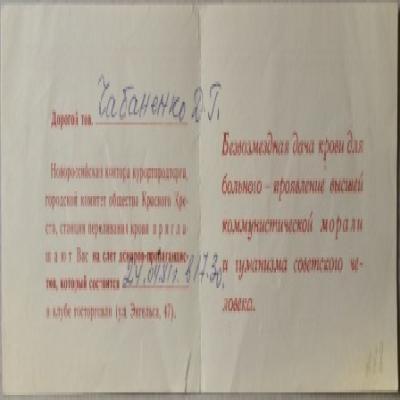 Дорогой тов. Чабаненко Д.Г.
Новороссийская контора курортторга,
городской комитет общества Красного Кре-
ста, станция переливания крови пригла-
шают Вас на слет доноров-
тов, который состоится в 17.30
в клубе госторговли (ул. Энгельса, 47).
Безвозмездная дача крови для
больного — проявление высшей
коммунистической морали
и гуманизма советского че-
ловека.